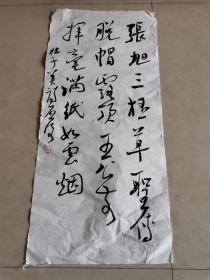 張旭三杯草聖傳
脱帽露頂王公前
揮毫滿紙如雲烟
杜子美詩